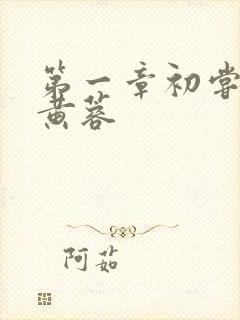 第一章初尝
黄蓉
阿茹